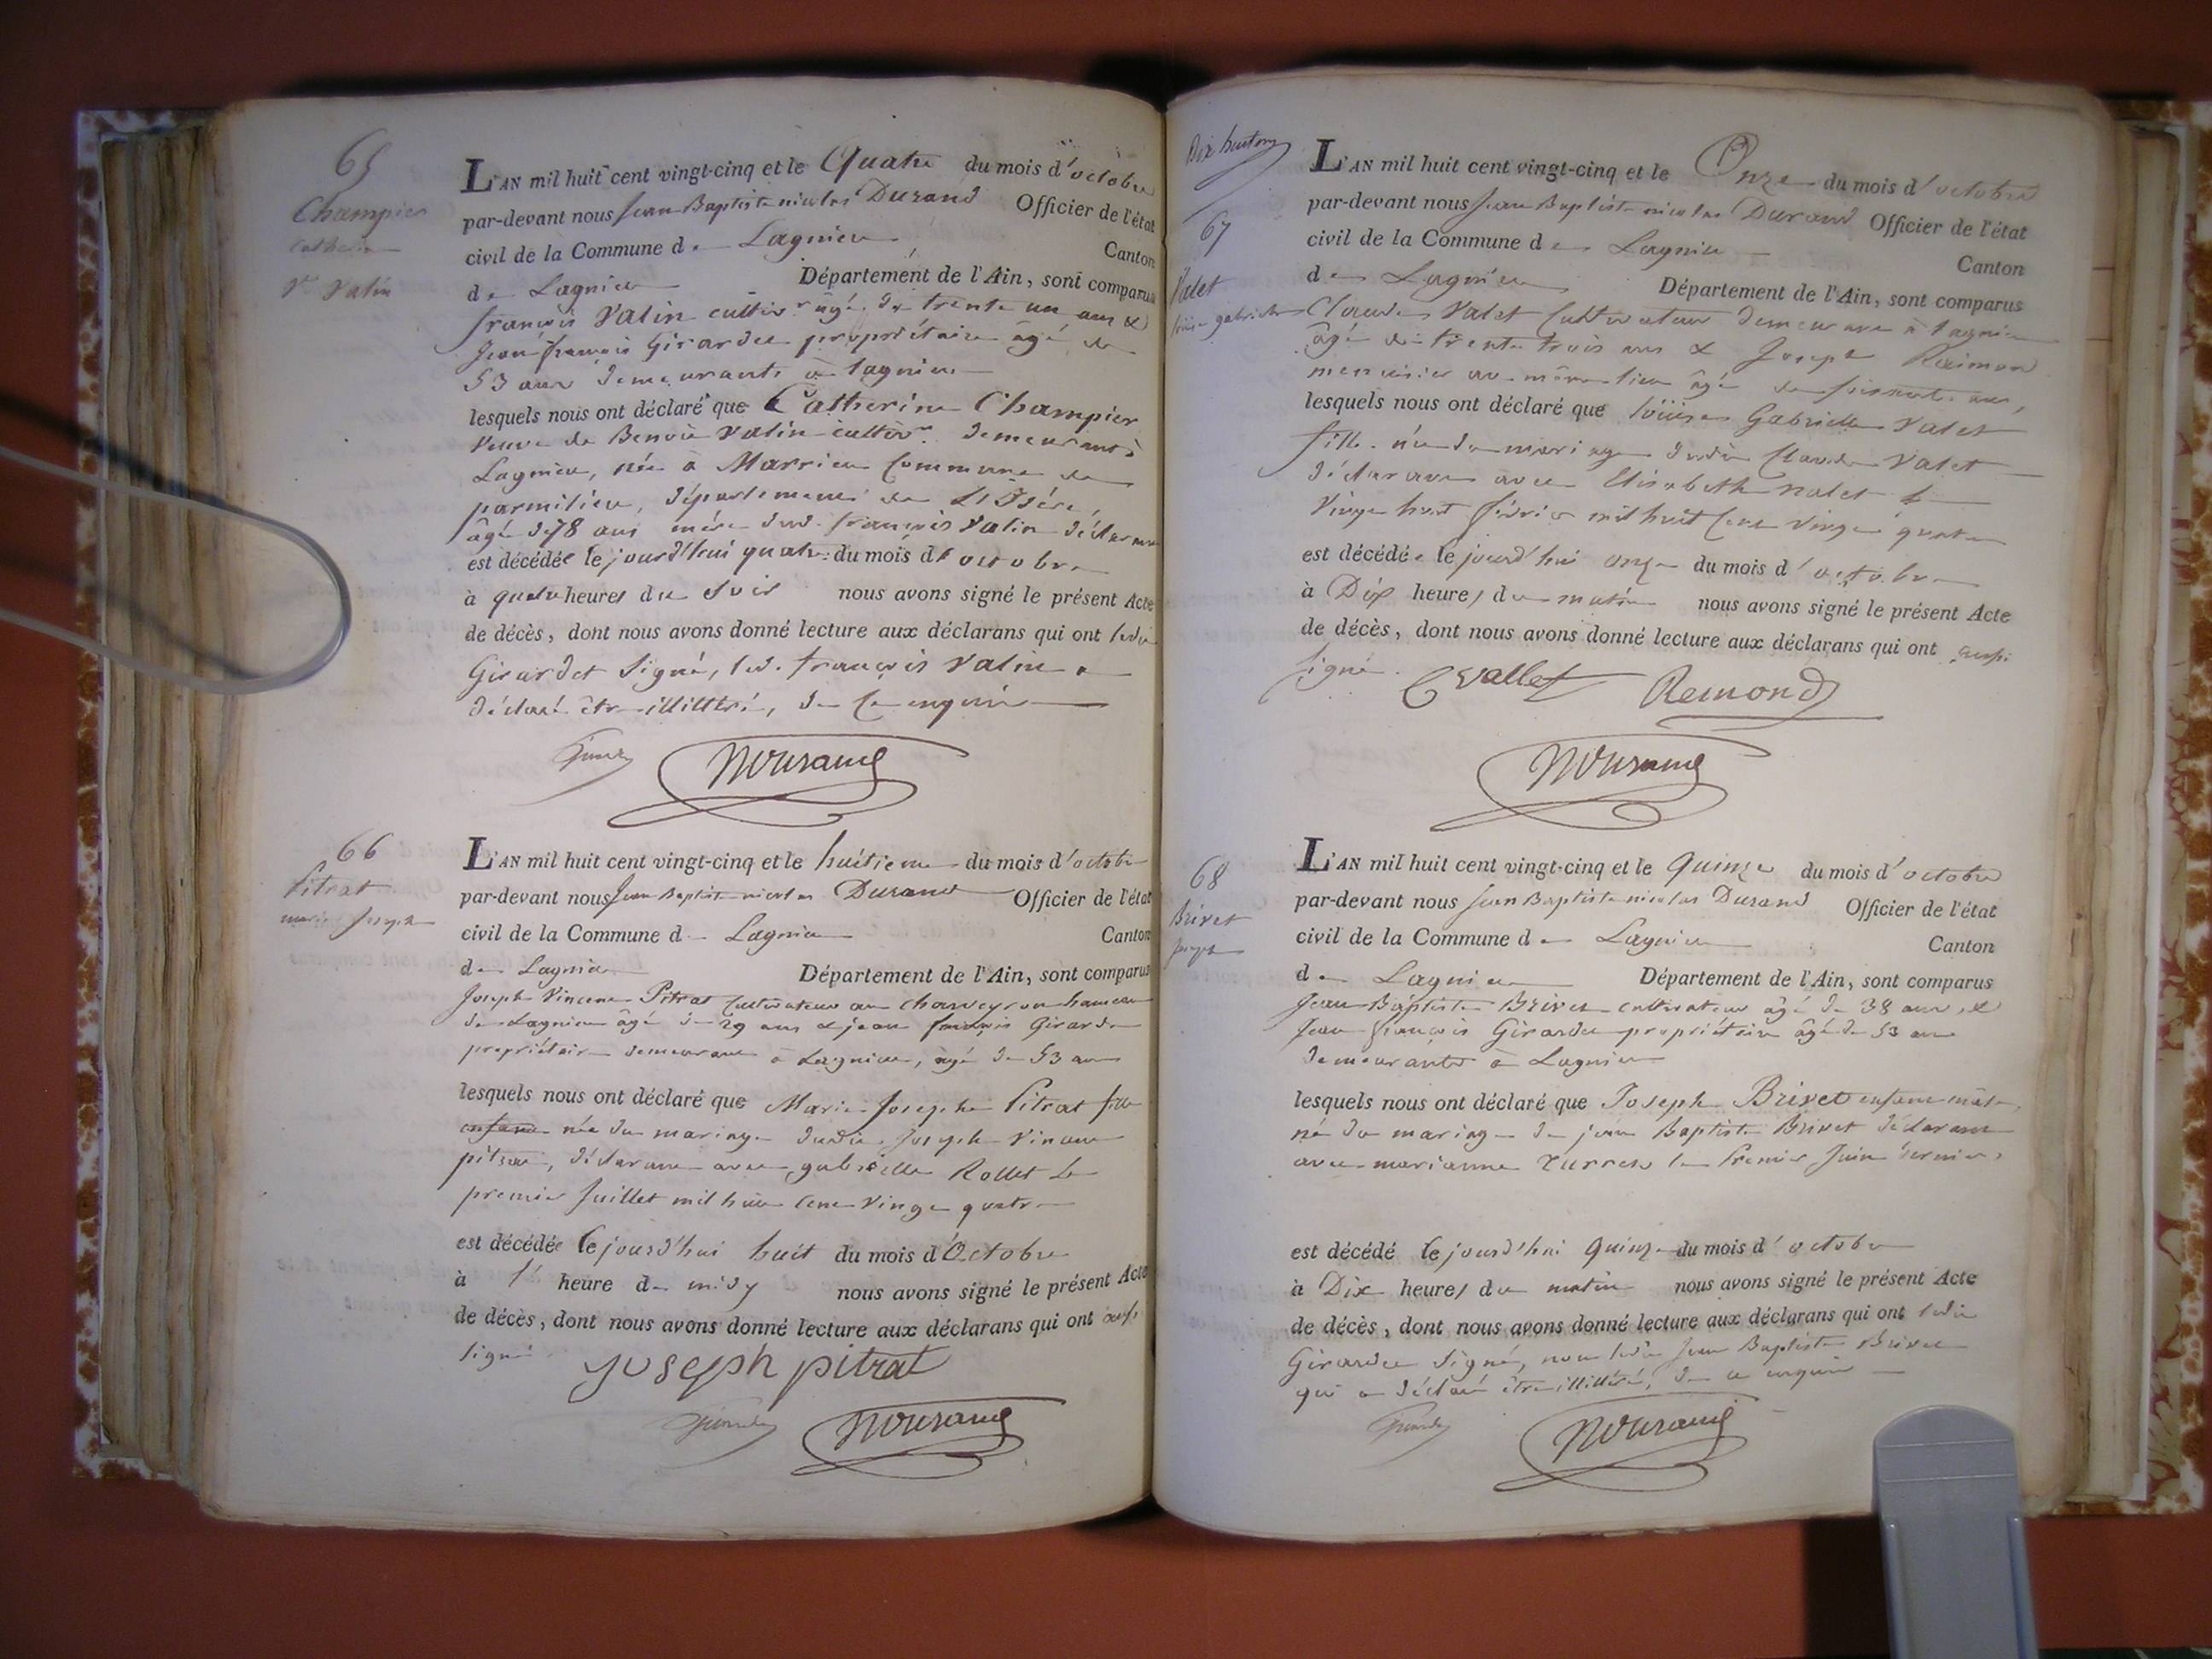 65
Champier
Catherine
Ve Valin
L'AN mil huit cent vingt-cinq et le Quatre du mois d'octobre
par-devant nous Jean Baptiste nicolas Durand Officier de l'état
civil de la Commune de Lagnieu Canton
de Lagnieu Département de l'Ain, sont comparus
françois Valin cultivr âgé de trente un ans &
Jean françois Girardet propriétaire âgé de
53 ans demeurants à lagnieu
lesquels nous ont déclaré que Catherine Champier
Veuve de Benoit Valin demeurant à
Lagnieu, née à Marrieu Commune de
parmilieu, département de L'Isère,
âgé d 78 ans mère dud. françois Valin déclarant
est décédée le jourd'hui quatre du mois d'octobre
à quatre heures du soir nous avons signé le présent Acte
de décès, dont nous avons donné lecture aux déclarans qui ont ledit
Girardet signé, led. françois Valin a
déclaré être illittré, de ce enquis
NDurand
66
Pitrat
marie Joseph
L'AN mil huit cent vingt-cinq et le huitieme du mois d'octobre
par-devant nous Jean Baptiste nicolas Durand Officier de l'état
civil de la Commune de Lagnieu Canton
de Lagnieu Département de l'Ain, sont comparus
Joseph Vincent Pitrat Cultivateur au Charveyron hameau
de Lagnieu âgé de 29 ans & jean françois Girardet
propriétaire demeurant à Lagnieu, âgé de 53 ans
lesquels nous ont déclaré que Marie Josephe Pitrat fille
enfant née du mariage dudit Joseph Vincent
pitrat, déclarant avec gabrielle Rollet le
premier Juillet mil huit Cent Vingt quatre
est décédée le jourd'hui huit du mois d'Octobre
à 1 heure de midy nous avons signé le présent Acte
de décès, dont nous avons donné lecture aux déclarans qui ont aussi
signé
Joseph pitrat
NDurand
Dix huit
67
Valet
Loüise gabrielle
L'AN mil huit cent vingt-cinq et le Onze du mois d'octobre
par-devant nous Jean Baptiste nicolas Durand Officier de l'état
civil de la Commune de Lagnieu Canton
de Lagnieu Département de l'Ain, sont comparus
Claude Valet Cultivateur demeurant à lagnieu
âgé de trente trois ans & Joseph Raimond
menuisier au même lieu âgé de soixante ans,
lesquels nous ont déclaré que loüise Gabrielle Valet
fille née du mariage dudit Claude Valet
déclarant avec Elisabeth Valet le
Vingt huit février mil huit Cent Vingt quatre
est décédée le jourd'hui onze du mois d'octobre
à Dix heures du matin nous avons signé le présent Acte
de décès, dont nous avons donné lecture aux déclarans qui ont aussi
signé.
C vallet Remond
NDurand
68
Brivet
joseph
L'AN mil huit cent vingt-cinq et le Quinze du mois d'octobre
par-devant nous Jean Baptiste nicolas Durand Officier de l'état
civil de la Commune de Lagnieu Canton
de Lagnieu Département de l'Ain, sont comparus
Jean Baptiste Brivet cultivateur âgé de 38 ans, &
Jean françois Girardet propriétaire âgé de 53 ans
demeurants à Lagnieu
lesquels nous ont déclaré que Joseph Brivet enfant mâle
né du mariage de jean Baptiste Brivet déclarant
avec marianne le Premier Juin dernier,
est décédé le jourd'hui Quinze du mois d'octobre
à Dix heures du matin nous avons signé le présent Acte
de décès, dont nous avons donné lecture aux déclarans qui ont ledit
Girardet signé, non ledit Jean Baptiste Brivet
qui a déclaré être illittéré, de ce enquis
NDurand